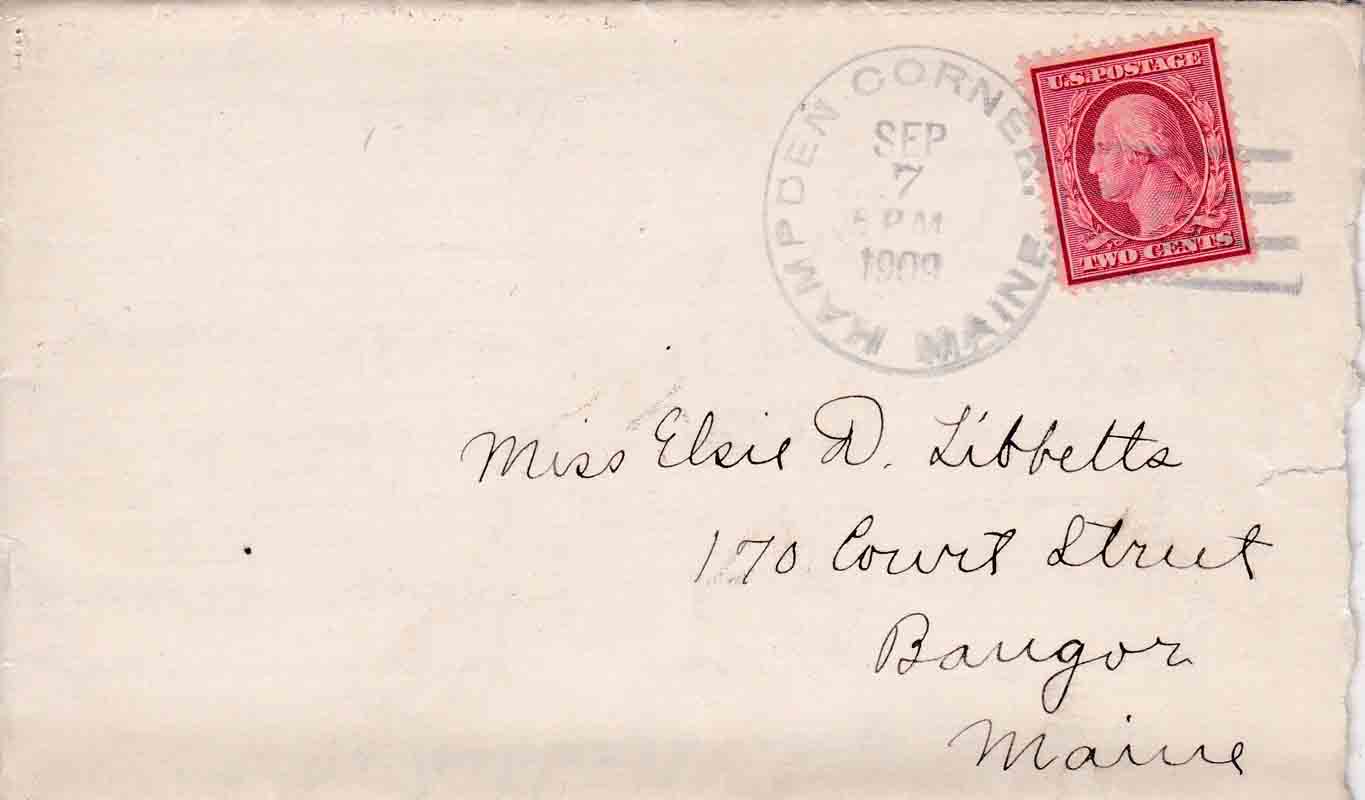 HAMPDEN CORNER.
MAINE
SEP
7
5 PM
1909
U.S. POSTAGE
TWO CENTS
Miss Elsie D. Tibbetts
170 Court Street
Bangor
Maine